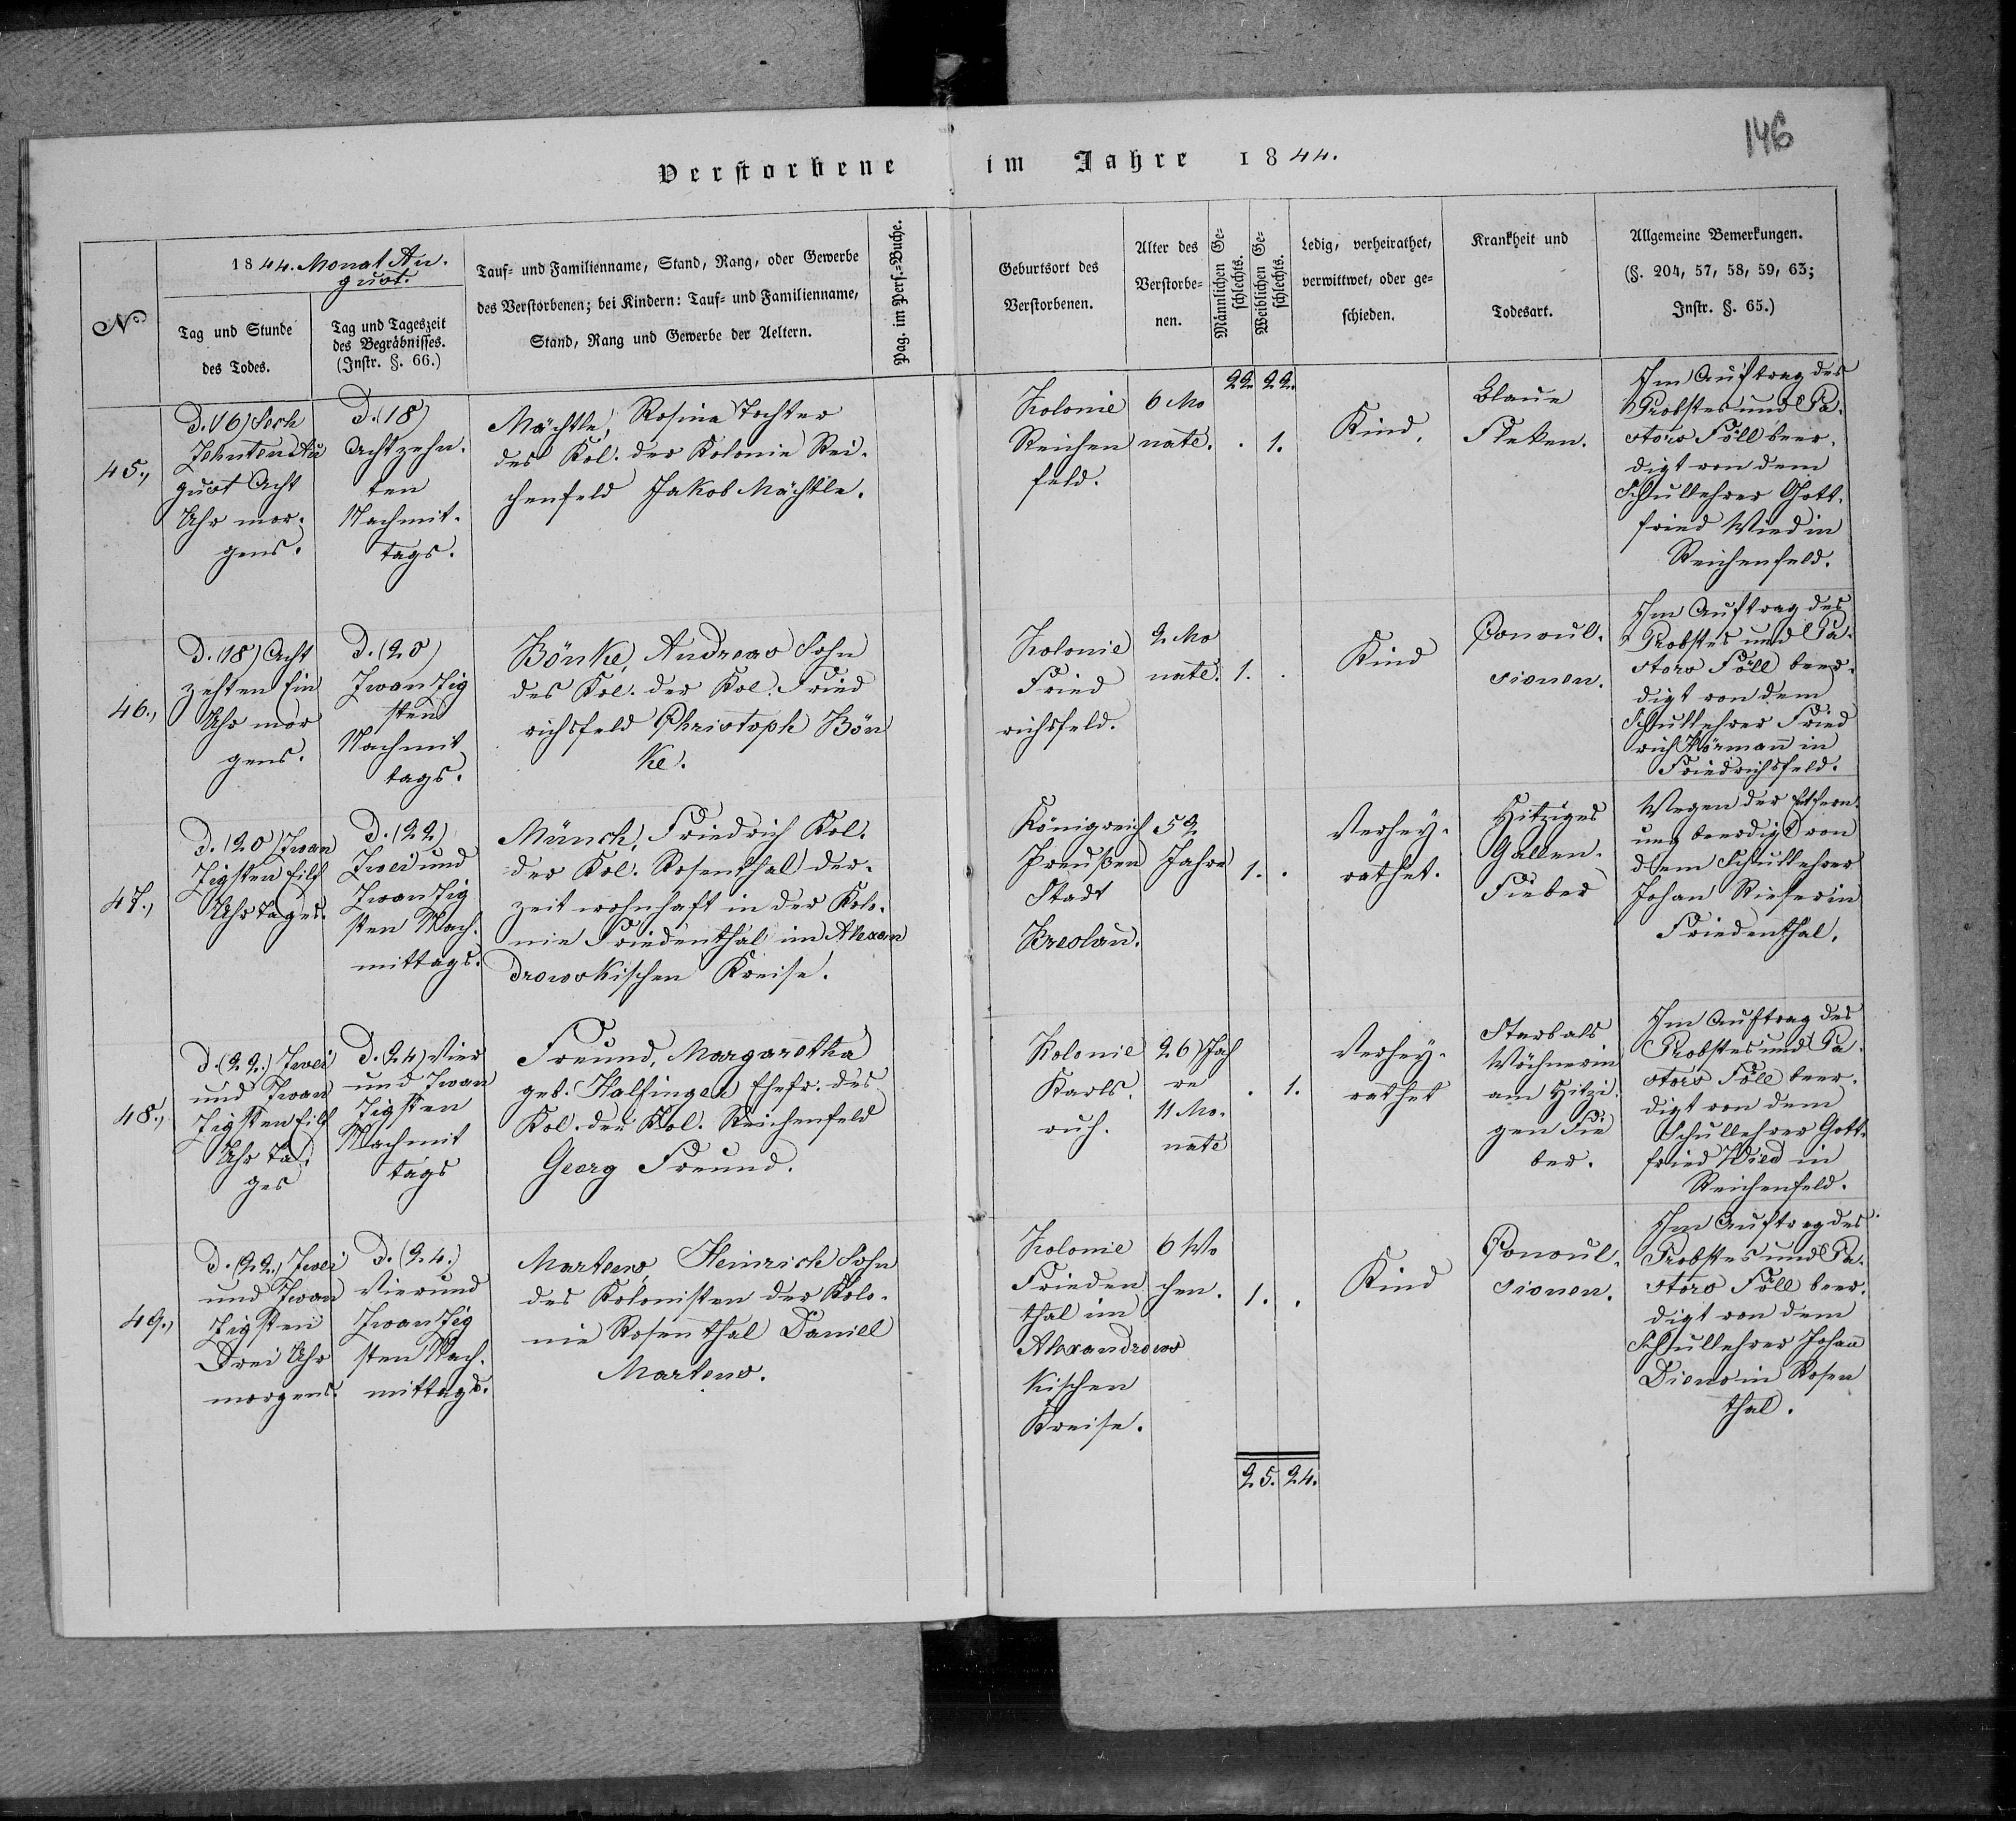 146
Verstorbene im Jahre 1844.
No
1844. Monat Au-
gust.
Tag und Stunde
des Todes.
Tag und Tageszeit
des Begräbnisses.
(Instr. §. 66.)
Tauf- und Familienname, Stand, Rang, oder Gewerbe
des Verstorbenen; bei Kindern: Tauf- und Familienname,
Stand, Rang und Gewerbe der Aeltern.
Pag. im Pers.-Buche.
Geburtsort des
Verstorbenen.
Alter des
Verstorbe-
nen.
Männlichen Ge-
schlechts.
Weiblichen Ge-
schlechts.
Ledig, verheirathet,
verwittwet, oder ge-
schieden.
Krankheit und
Todesart.
Allgemeine Bemerkungen.
(§. 204, 57, 58, 59, 63;
Instr. §. 65.)
22. 22.
45.,
D. (16) Sech
Zehnten Au
gust Acht
Uhr mor-
gens.
D. (18)
Achtzehn-
ten
Nachmit-
tags.
Mächtle, Rosina Tochter
des Kol. der Kolonie Rei-
chenfeld Jakob Mächtle.
Kolonie
Reichen
feld.
6 Mo
nate.
. 1.
Kind.
Blaue
Fleken.
Im Auftrag des
Probstes und Pa-
stors Föll beer-
digt von dem
Schullehrer Gott-
fried Wied in
Reichenfeld.
46.,
D. (18) Acht
zehten Ein
Uhr mor
gens.
D. (20)
Zwanzig
sten
Nachmit
tags.
Bönke, Andreas Sohn
des Kol. der Kol. Fried
richsfeld Christoph Bön
ke.
Kolonie
Fried
richsfeld.
2 Mo
nate.
1. .
Kind
Convul-
sionen.
Im Auftrag des
Probstes und Pa-
stors Föll beer-
digt von dem
Schullehrer Fried
rich Hörmann in
Friedrichsfeld.
47.,
D. (20) Zwan
Zigsten Eilf
Uhr tages.
D. (22)
Zwei und
Zwanzig
sten Nach-
mittags.
Münch, Friedrich Kol.
der Kol. Rosenthal der-
zeit wohnhaft in der Kolo-
nie Friedenthal im Alexan
drowskischen Kreise.
Königreich
Preußen
Stadt
Breslau.
52
Jahre
1. .
Verhey-
rathet.
Hitziges
Gallen-
Fieber
Wegen der Entfern-
ung beerdigt von
dem Schullehrer
Johan Rieser in
Friedenthal.
48.,
D. (22.) Zwei
und Zwan
Zigsten Eilf
Uhr Ta-
ges
D. (24) Vier
und Zwan
Zigsten
Nachmit
tags
Freund, Margaretha
geb. Halfinger Ehefr. des
Kol. der Kol. Reichenfeld
Georg Freund.
Kolonie
Karls-
ruh.
26) Jah
re
11 Mo-
nate
. 1.
Verhey-
rathet
Starb als
Wöchnerin
am Hitzi-
gen Fie
ber.
Im Auftrag des
Probstes und Pa-
stors Föll beer-
digt von dem
Schullehrer Gott-
fried Wied in
Reichenfeld.
49.,
D. (22.) Zwei
und Zwan
Zigsten
Drei Uhr
morgens.
D. (24.)
Vierund
Zwanzig
sten Nach-
mittags.
Martens, Heinrich Sohn
des Kolonisten der Kolo-
nie Rosenthal Daniel
Martens.
Kolonie
Frieden
thal im
Alexandrows
kischen
Kreise.
6 Wo
chen.
1. .
Kind
Convul-
sionen.
Im Auftrag des
Probstes und Pa-
stors Föll beer-
digt von dem
Schullehrer Johan
Diens in Rosen
thal.
25. 24.